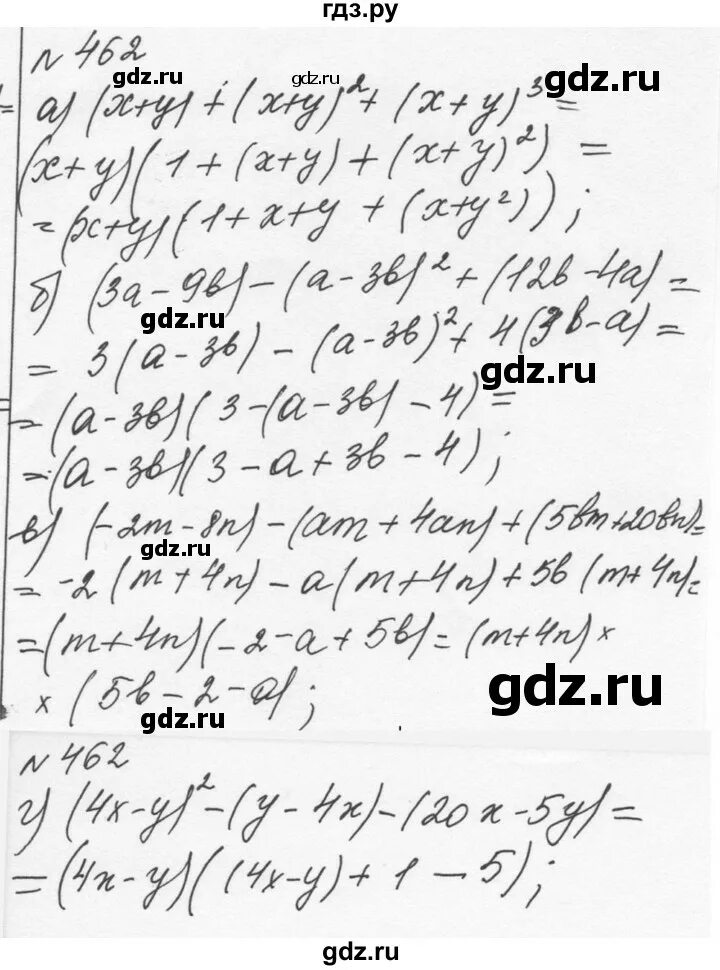 гдз.ру
№ 462
gdz.ru gdz.ru
а) (x+y) + (x+y)² + (x+y)³ =
(x+y)(1+(x+y)+(x+y)²) =
= (x+y)(1+x+y+(x+y²));
gdz.ru gdz.ru
б) (3a-9b)-(a-3b)²+(12b-4a) =
gdz.ru
= 3(a-3b)-(a-3b)²+4(3b-a) =
gdz.ru
= (a-3b)(3-(a-3b)-4) =
= (a-3b)(3-a+3b-4);
gdz.ru
в) (-2m-8n)-(am+4an)+(5bm+20bn) =
gdz.ru
= -2(m+4n)-a(m+4n)+5b(m+4n) =
= (m+4n)(-2-a+5b) = (m+4n) ×
× (5b-2-a);
gdz.ru
gdz.ru
№ 462
г) (4x-y)²-(y-4x)-(20x-5y) =
= (4x-y)((4x-y)+1-5);
gdz.ru
gdz.ru
gdz.ru